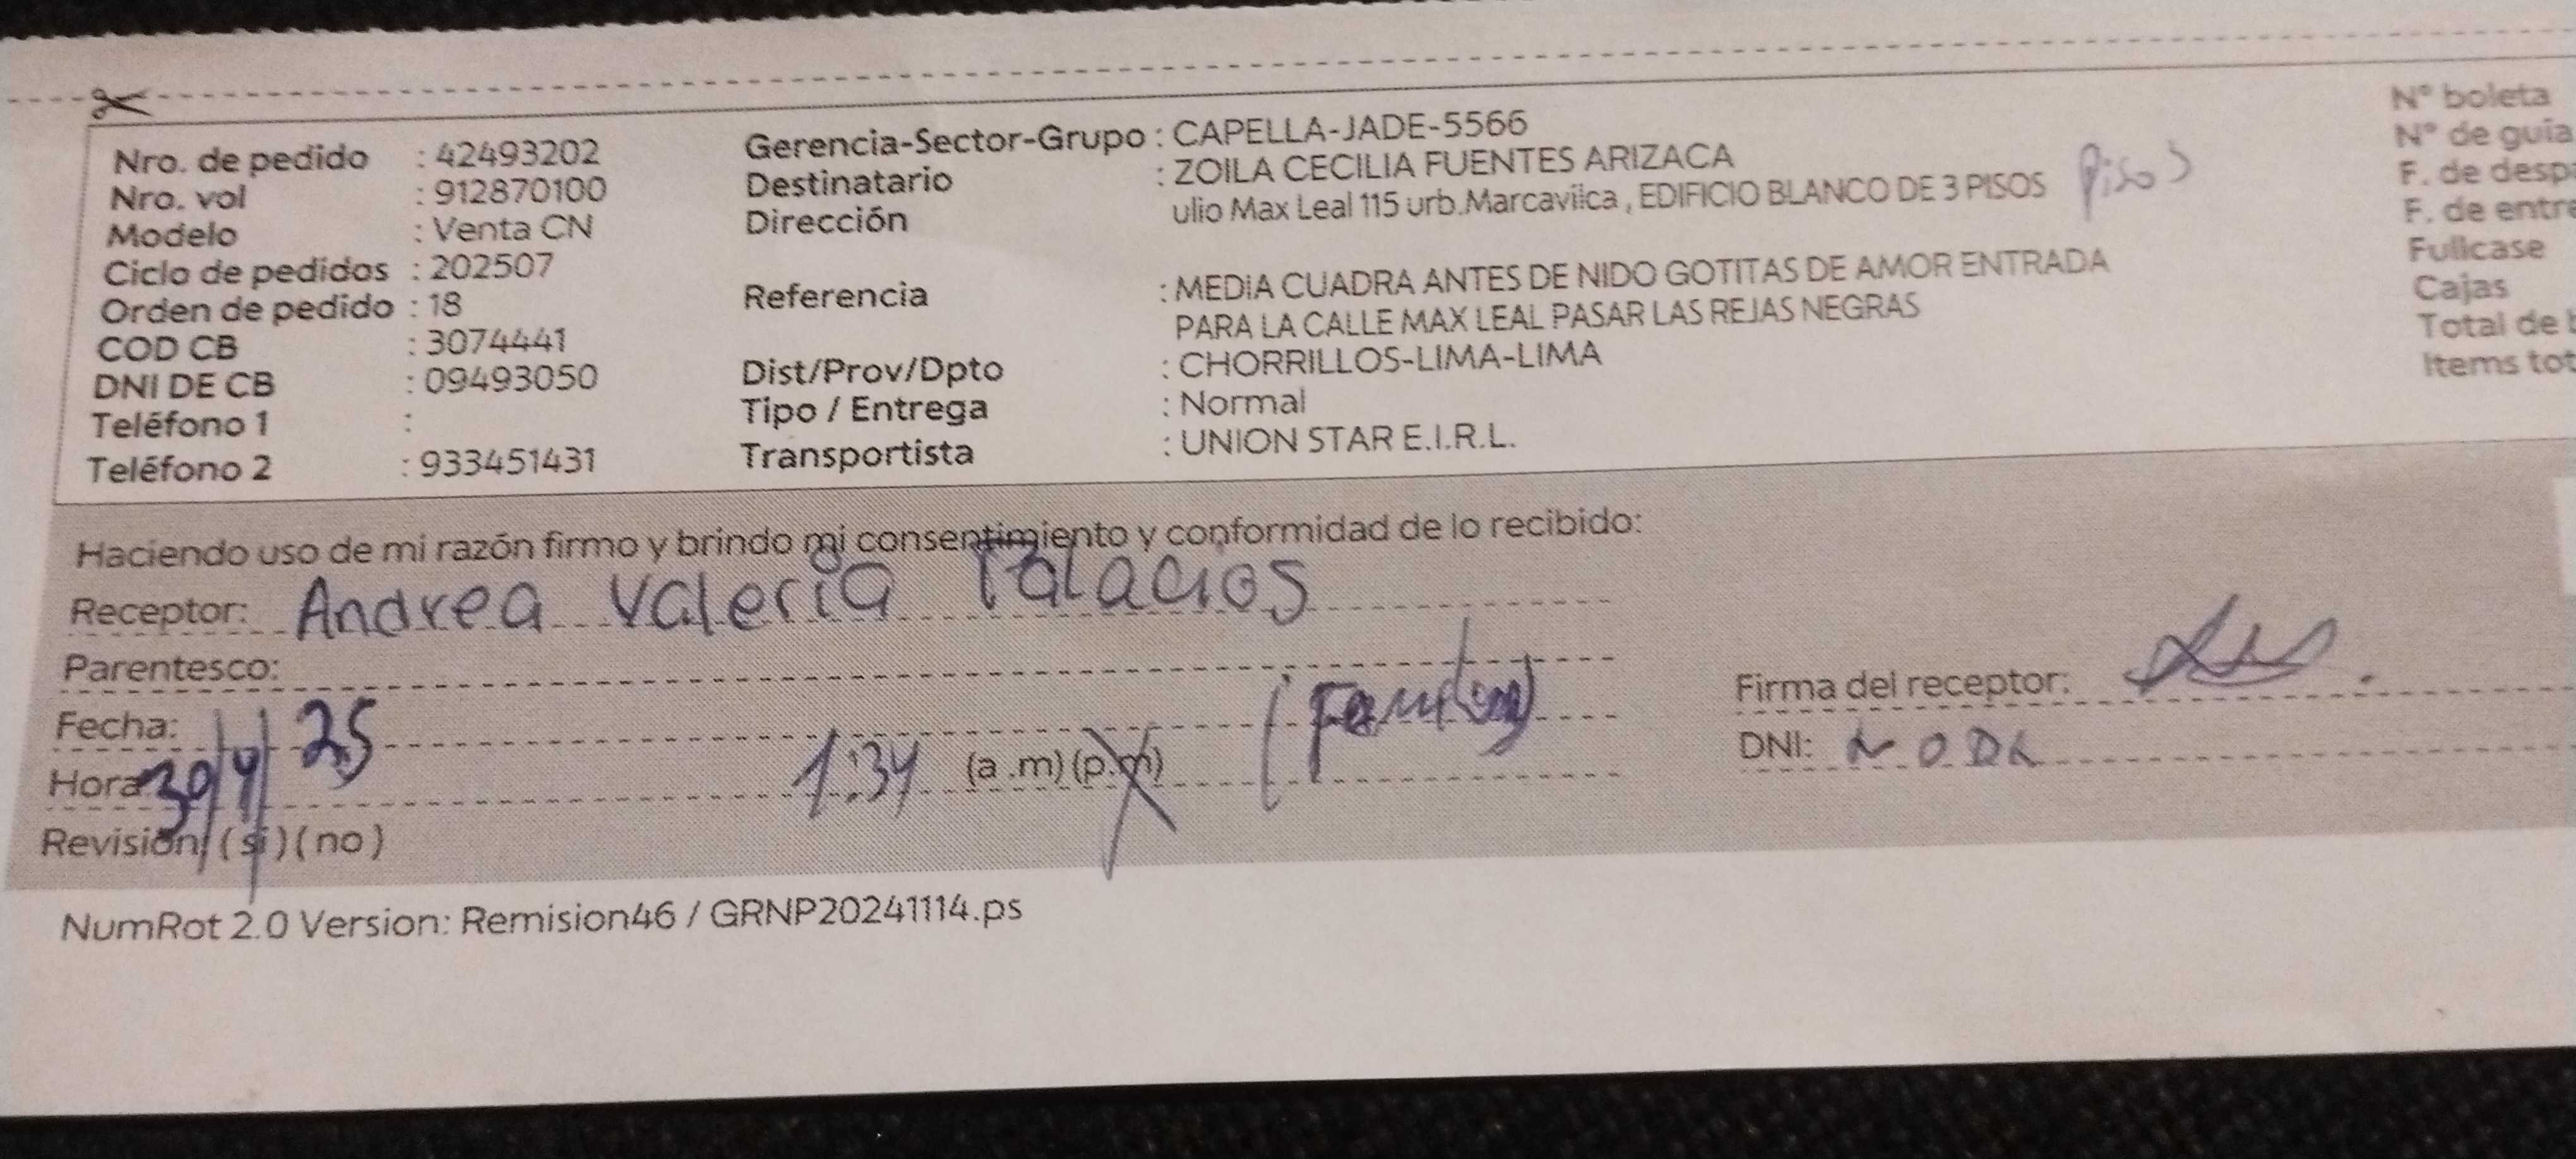 Nro. de pedido : 42493202
Nro. vol : 912870100
Modelo : Venta CN
Ciclo de pedidos : 202507
Orden de pedido : 18
COD CB : 3074441
DNI DE CB : 09493050
Teléfono 1 :
Teléfono 2 : 933451431
Gerencia-Sector-Grupo : CAPELLA-JADE-5566
Destinatario : ZOILA CECILIA FUENTES ARIZACA
Dirección ulio Max Leal 115 urb.Marcavilca , EDIFICIO BLANCO DE 3 PISOS Piso 3
Referencia : MEDIA CUADRA ANTES DE NIDO GOTITAS DE AMOR ENTRADA
PARA LA CALLE MAX LEAL PASAR LAS REJAS NEGRAS
Dist/Prov/Dpto : CHORRILLOS-LIMA-LIMA
Tipo / Entrega : Normal
Transportista : UNION STAR E.I.R.L.
N° boleta
N° de guía
F. de desp
F. de entre
Fullcase
Cajas
Total de
Items tot
Haciendo uso de mi razón firmo y brindo mi consentimiento y conformidad de lo recibido:
Receptor: Andrea Valeria Palacios
Parentesco:
Fecha: 30/4/25
Hora 1:34 (a .m) (p.m)
Revisión (si) (no)
Firma del receptor:
DNI:
NumRot 2.0 Version: Remision46 / GRNP20241114.ps